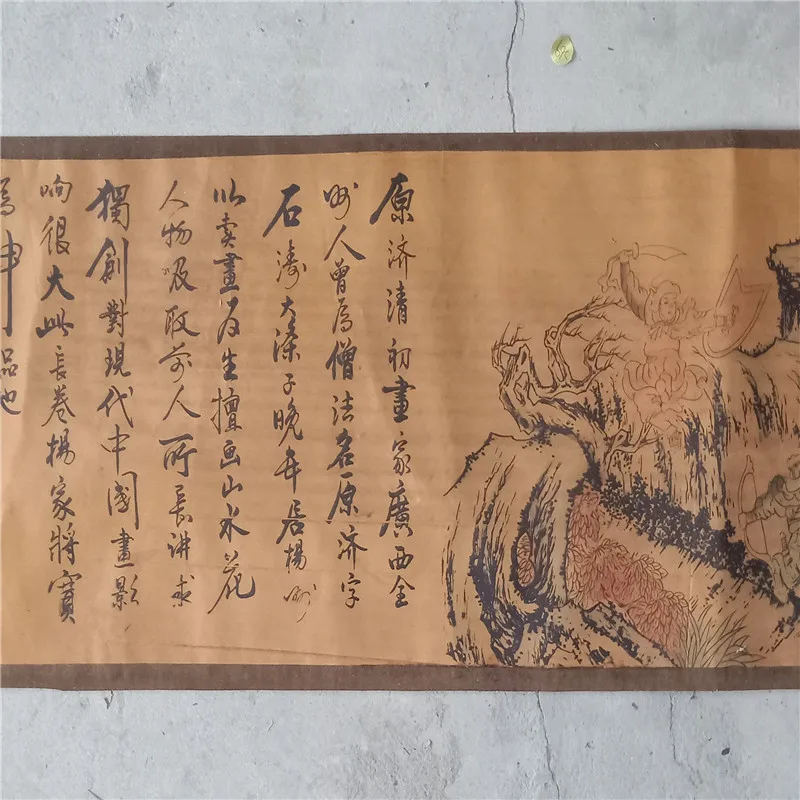 原济清初畫家廣西全
州人曾爲僧法名原济字
石涛大滌子晚年居揚州
以卖畫为生擅画山水花
人物吸取前人所長讲求
獨創對現代中國畫影
响很大此長卷楊家將實
爲神品也